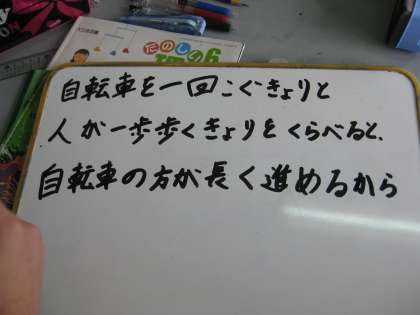 たのしい
自転車を一回こぐきょりと
人が一歩歩くきょりをくらべると、
自転車の方が長く進めるから